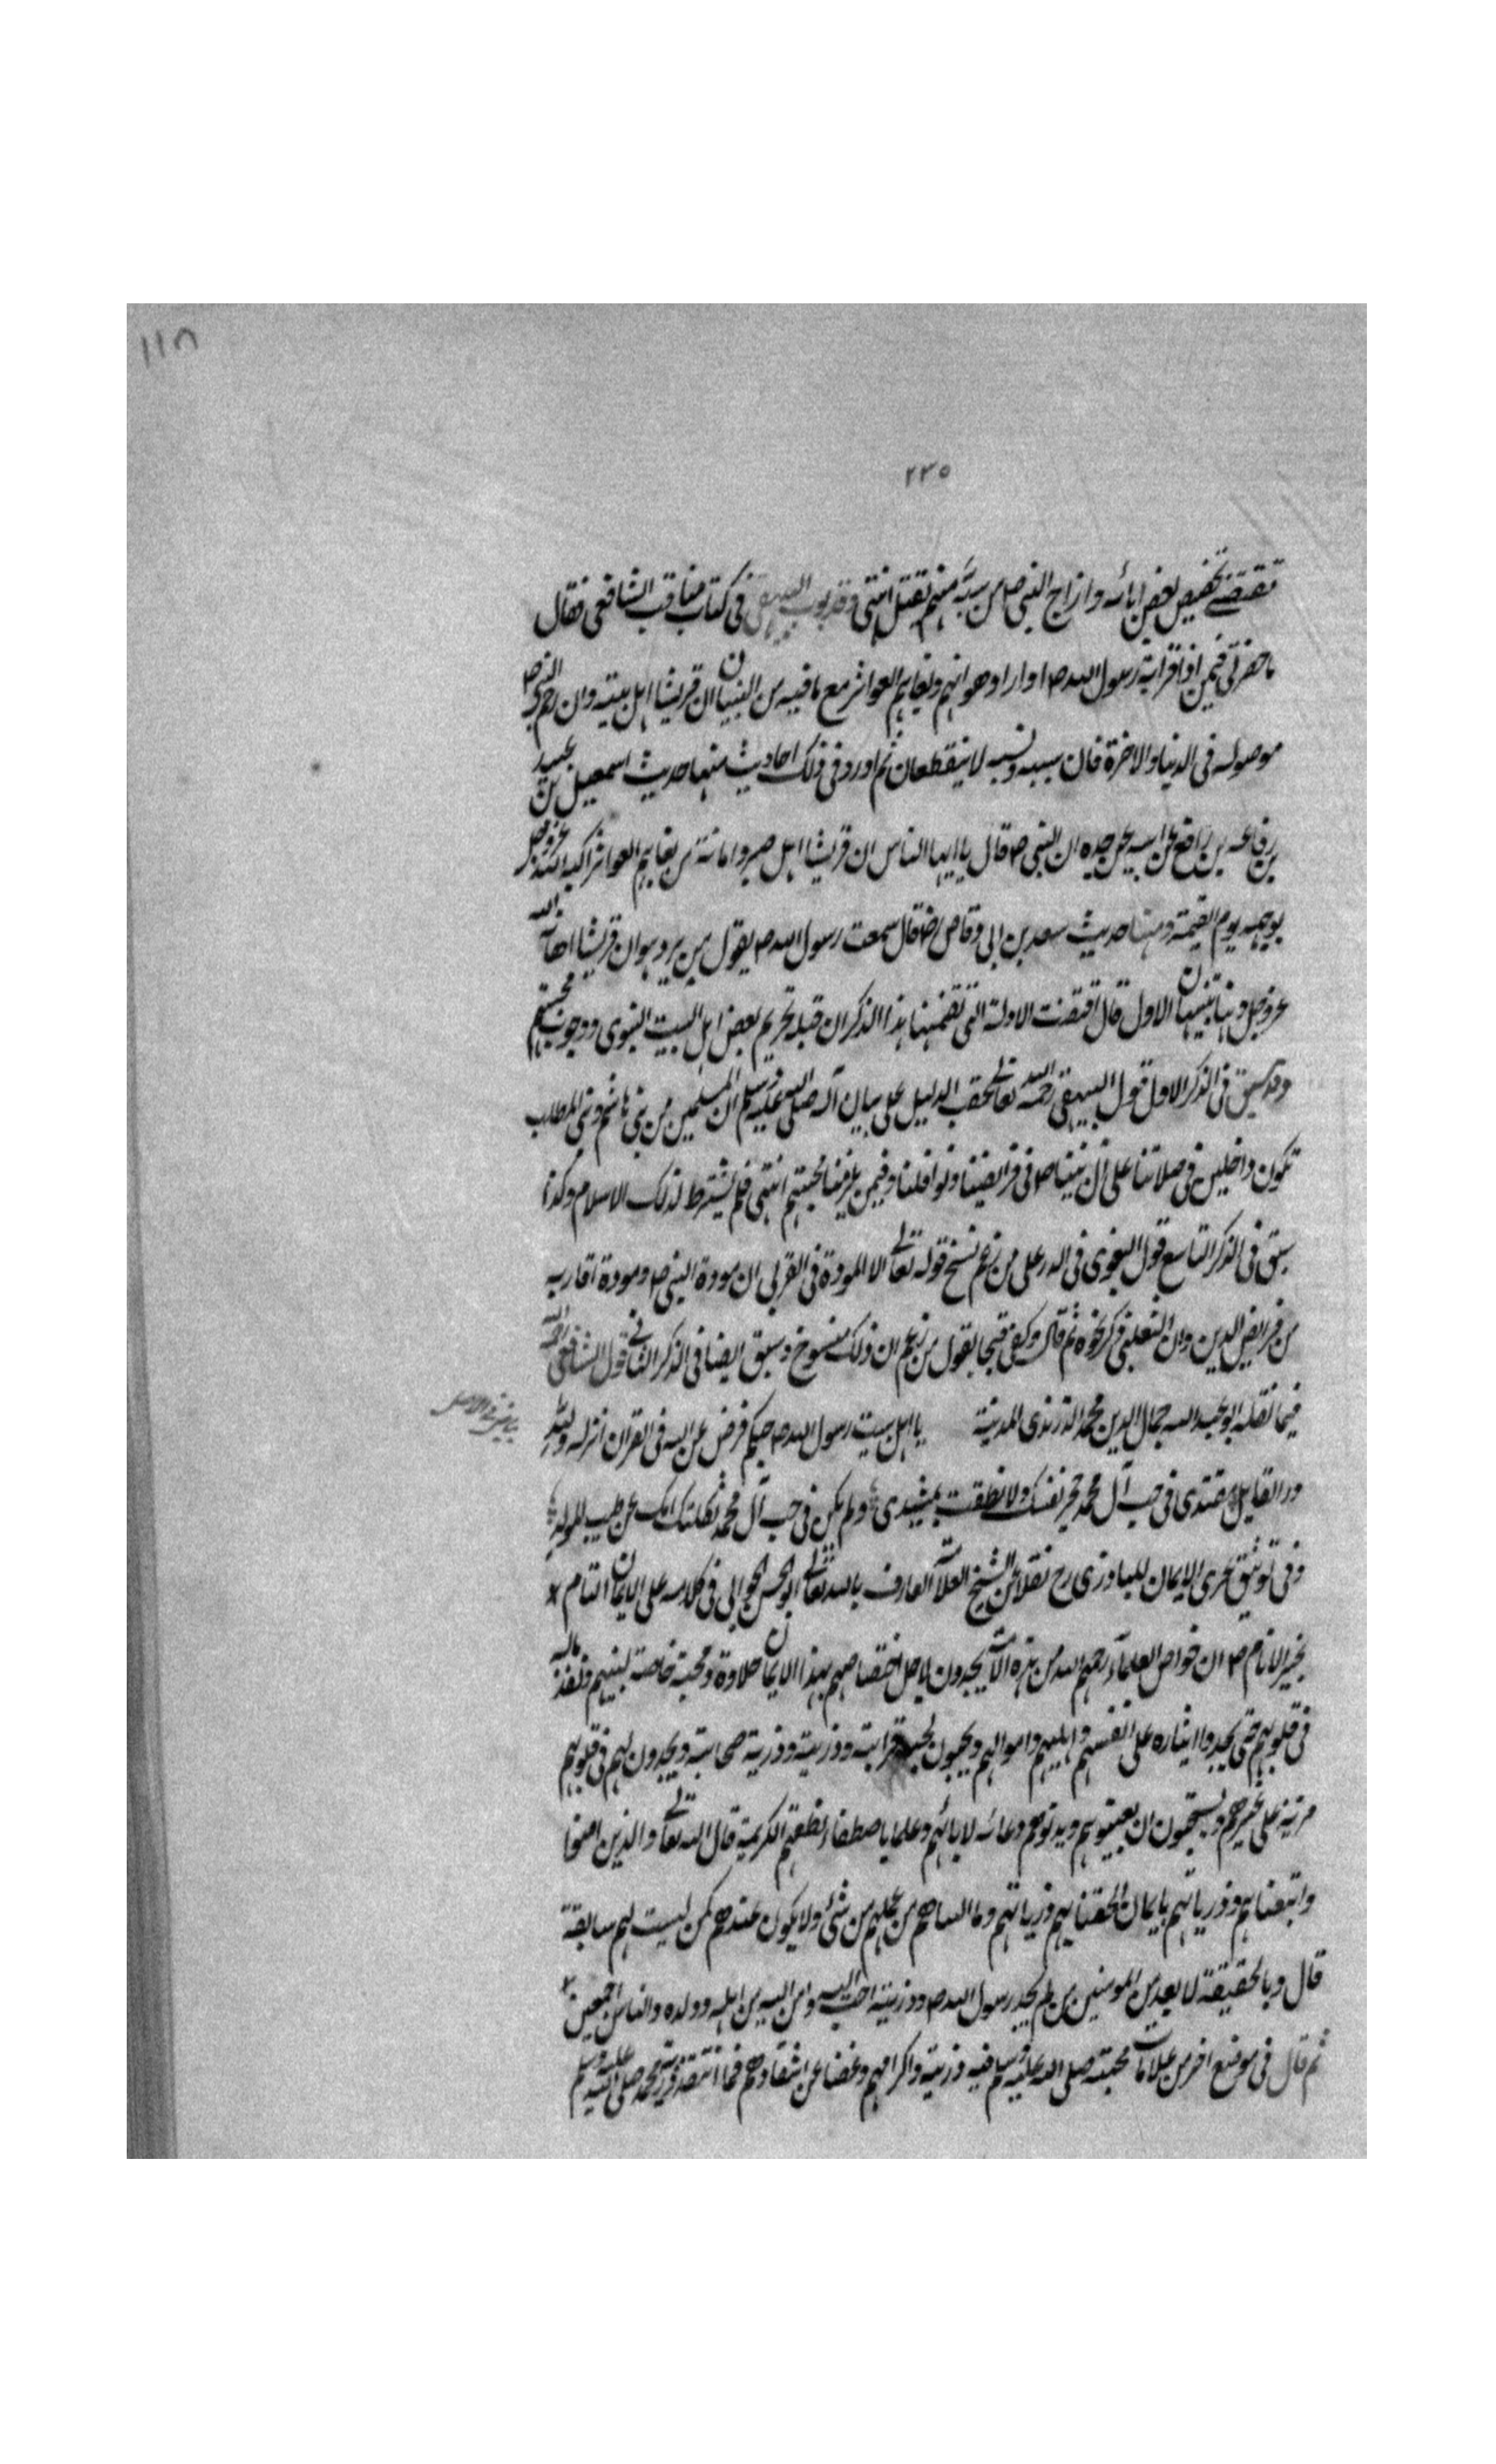 ١١٨
٢٣٥
تقتضي تخصيص بعض ابائه وازواج النبي ص من سبه منهم بقتل انتهى وقد بوب البيهقي في كتاب مناقب الشافعي فقال
ما حضرني فيمن اذى قرابة رسول الله ص او اراد هوانهم وبغاهم العواثر مع ما فيه من البيان ان قريشا اهل بيته وان رحم النبي ص
موصولة في الدنيا والاخرة فان سببه ونسبه لا ينقطعان ثم اورد في ذلك احاديث منها حديث اسمعيل بن عبيد
بن رفاعه بن رافع عن ابيه عن جده ان النبي ص قال يا ايها الناس ان قريشا اهل صبر وامانة من بغاهم العواثر اكبه الله عز وجل
بوجهه يوم القيمة ومنها حديث سعد بن ابي وقاص رض قال سمعت رسول الله ص يقول من يرد هوان قريشا اهانه الله
عز وجل وهنا تنبيهان الاول قال اقتضت الادلة التي تضمنها هذا الذكر ان قبله تحريم بعض اهل البيت النبوي ووجوب محبتهم
وقد سبق في الذكر الاول قول البيهقي رحمه الله تعالى عقب الدليل على بيان آله صلى الله عليه وسلم ان المسلمين من بني هاشم وبني المطلب
تكون داخلين في صلاتنا على آل نبينا ص في فرائضنا ونوافلنا وفيمن يلزمنا محبتهم انتهى فلم يشترط لذلك الاسلام وكذا
سبق في الذكر التاسع قول البغوي في الرد على من زعم نسخ قوله تعالى الا المودة في القربى ان مودة النبي ص ومودة اقاربه
من فرايض الدين وان الثعلبي ذكر نحوه ثم قال وكفى قبحا بقول من زعم ان ذلك منسوخ وسبق ايضا في الذكر الثاني قول الشافعي رحمه الله
فيما نقله ابو عبد الله جمال الدين محمد الزرندي المدينة يا اهل بيت رسول الله ص حبكم فرض من الله في القران انزله ولله
در القايل مقتدى في حب آل محمد نفسك ولا نطقت ولم يكن في حب آل محمد ثكلتك امك غير طيب المولد
وفي توثيق عرى الايمان للبارزي رح نقلا عن الشيخ العلامة العارف بالله تعالى ابو الحسن الحرالي في كلامه على الايمان التام
بخير الانام ص ان خواص العلماء رحمهم الله من هذه الامة يجدون لاجل اختصاصهم بهذا الايمان حلاوة ومحبة خاصة لنبيهم
في قلوبهم حتى يجدوا ايثاره على انفسهم واهليهم واموالهم ويحبون لحبه قرابته وذريته وذرية صحابته ويجدون لهم في قلوبهم
مزية على غيرهم ويستحبون ان يعينوهم لابائهم وعلما باصطفاء نطفهم الكريمة قال الله تعالى والذين امنوا
واتبعناهم وذرياتهم بايمان الحقنا بهم ذرياتهم وما التناهم من عملهم من شئ ولا يكون عندهم كمن ليست لهم سابقة
قال وبالحقيقة لا يعد من المومنين من لم يجد رسول الله ص وذريته احب اليه واعز اليه من اهله وولده والناس اجمعين
ثم قال في موضع اخر من علامات محبته صلى الله عليه وسلم فيه ذريته واكرامهم وغضا عن انتقادهم فما انتقد ذرية محمد صلى الله عليه وسلم
بياض في الاصل